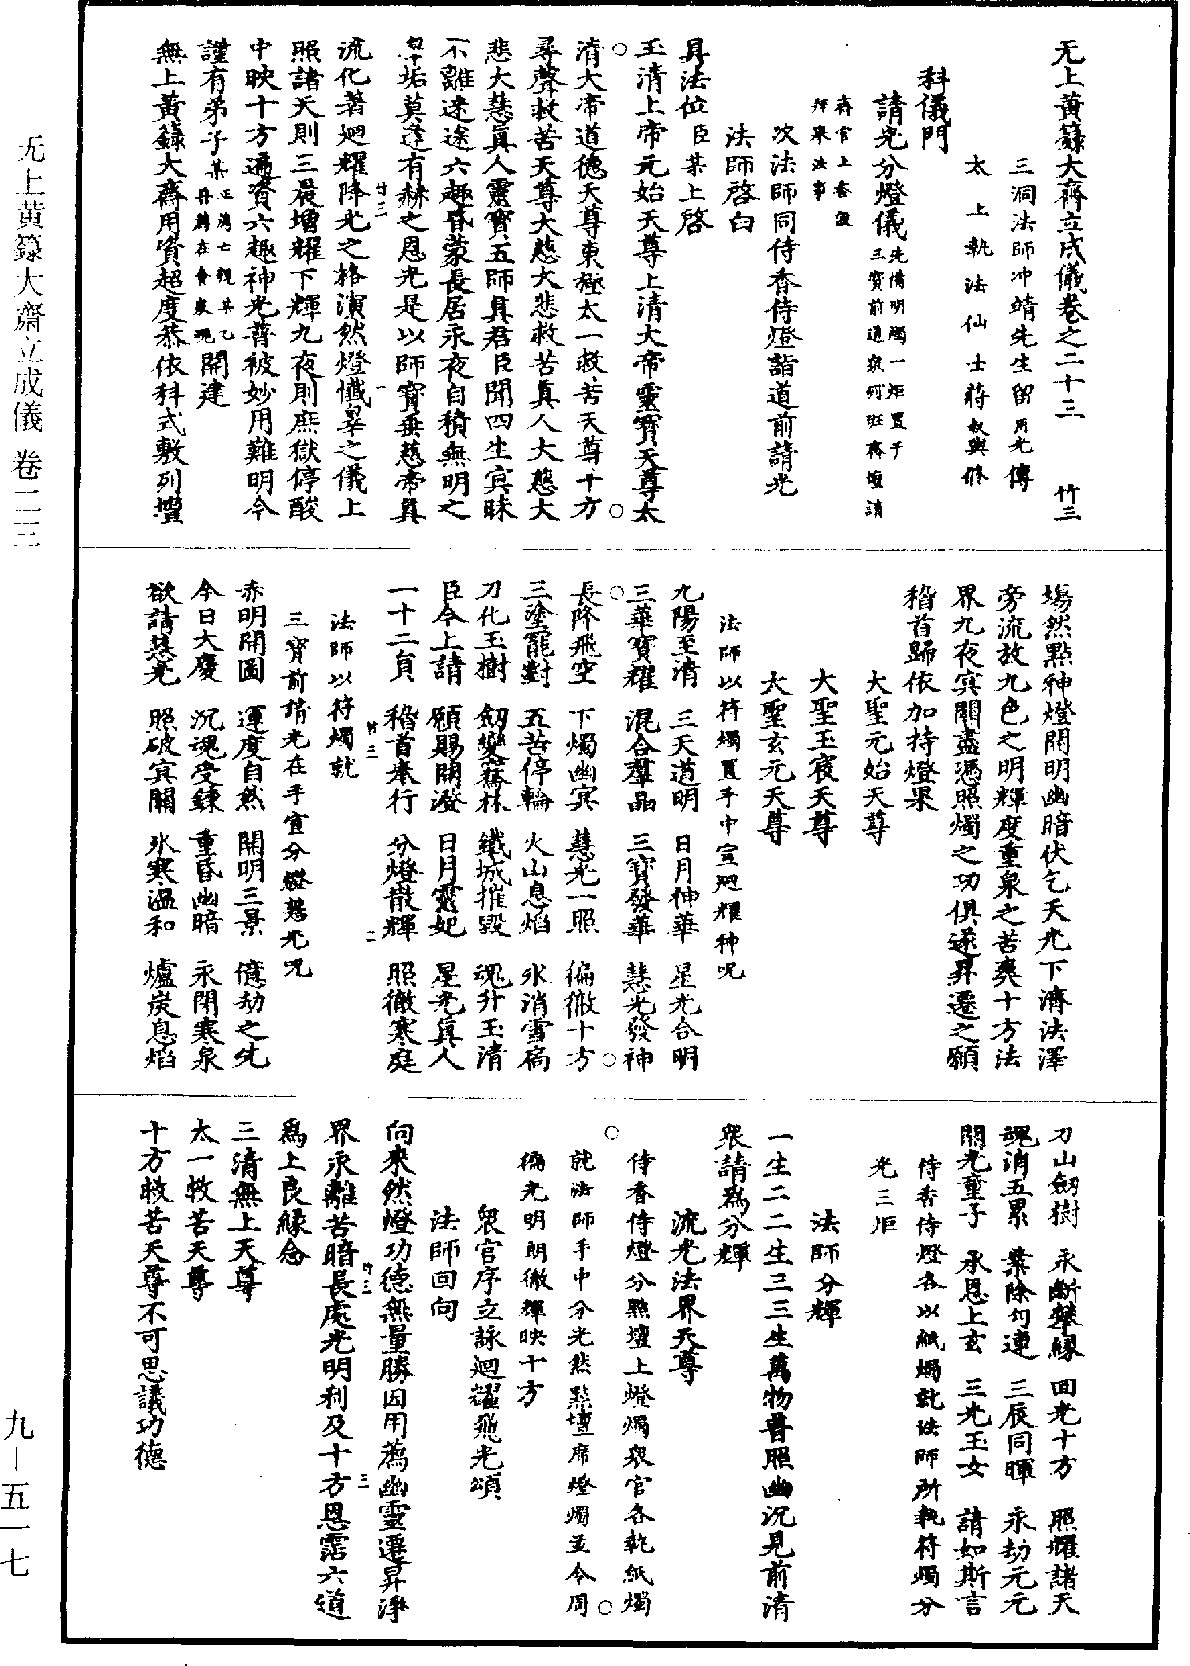 无上黃籙大齋立成儀卷之二十三 竹三
三洞法師冲靖先生留用光傳
太上執法仙士蔣叔輿修
科儀門
請光分燈儀先備明燭一炬置于三寶前道眾何班齋壇請
齋官上香設
拜眾法事
次法師同侍香侍燈詣道前請光
法師啓白
具法位臣某上啓
玉清上帝元始天尊上清大帝靈寶天尊太
清大帝道德天尊東極太一救苦天尊十方
尋聲救苦天尊大慈大悲救苦真人大慈大
悲大慧真人靈寶五師真君臣聞四生㝠昧
不離迷途六趣昏蒙長居永夜自積無明之
垢莫逢有赫之恩光是以師寶垂慈帝真
流化著廻耀降光之格演然燈懺罪之儀上
照諸天則三晨增耀下輝九夜則庶獄停酸
中映十方遍資六趣神光普被妙用難明今
謹有弟子某開建
無上黃籙大齋用資超度恭依科式敷列壇
塲然點神燈開明幽暗伏乞天光下濟法澤
旁流放九色之明輝度重泉之苦爽十方法
界九夜㝠關盡憑照燭之功俱遂昇遷之願
稽首歸依加持燈果
大聖元始天尊
大聖玉宸天尊
大聖玄元天尊
法師以符燭置手中宣廻耀神呪
九陽至清 三天道明 日月神華 星光合明
三華寶耀 混合羣品 三寶發華 慧光發神
長降飛空 下燭幽㝠 慧光一照 徧徹十方
三塗罷對 五苦停輪 火山息焰 氷消雪腐
刀化玉樹 劒變蕎林 鐵城摧毀 魂升玉清
臣今上請 願賜開澄 日月靈妃 星光真人
一十二員 稽首奉行 分燈散輝 照徹寒庭
法師以符燭就
三寶前請光在手宣分燈慧光呪
赤明開圖 運度自然 開明三景 億劫之先
今日大慶 沉魂受鍊 重昏幽暗 永閉寒泉
欲請慧光 照破㝠關 氷寒溫和 爐炭息焰
刀山劒樹 永斷葷緣 回光十方 照耀諸天
魂消五累 業除勾連 三辰同暉 永劫元元
開光童子 承恩上玄 三光玉女 請如斯言
侍香侍燈各以紙燭就法師所執符燭分
光三炬
法師分輝
一生二二生三三生萬物普照幽沉見前清
眾請爲分輝
流光法界天尊
侍香侍燈分點壇上燈燭眾官各執紙燭
就法師手中分光然點壇席燈燭並令周
徧光明朗徹輝映十方
眾官序立詠廻耀飛光頌
法師回向
向來然燈功德無量勝因用薦幽靈遷昇淨
界永離苦暗長處光明利及十方恩霑六道
爲上良緣念
三清無上天尊
太一救苦天尊
十方救苦天尊不可思議功德
无上黃籙大齋立成儀 卷二三
九—五一七